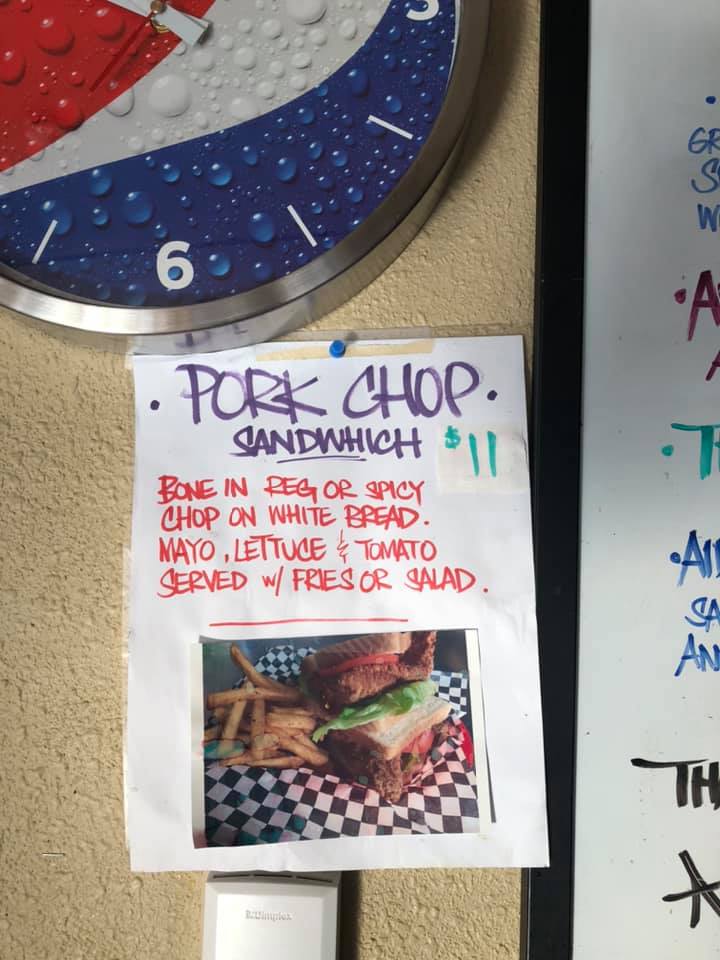 6
• PORK CHOP •
SANDWHICH $11
BONE IN REG OR SPICY
CHOP ON WHITE BREAD.
MAYO, LETTUCE & TOMATO
SERVED w/ FRIES OR SALAD.
Dimplex